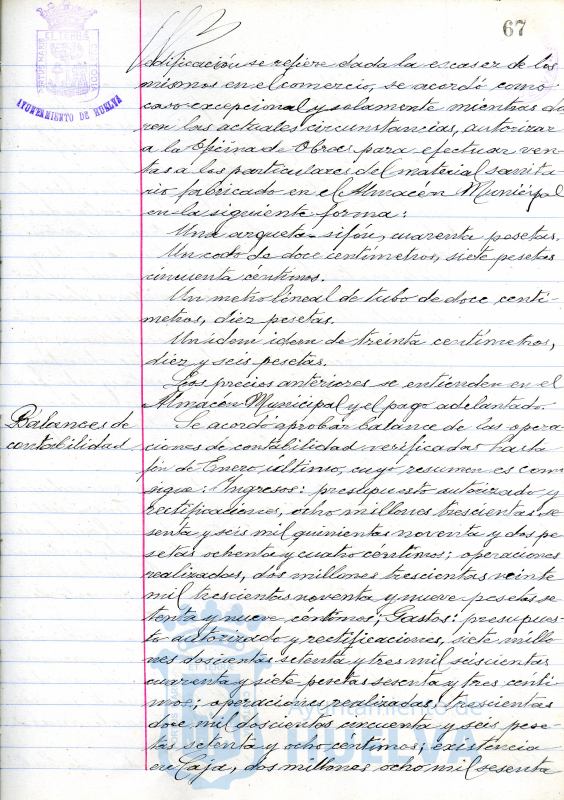 67
AYUNTAMIENTO DE HUELVA
edificación se refiere dada la escasez de los
mismos en el comercio, se acordó como
caso excepcional y solamente mientras du
ren las actuales circunstancias, autorizar
a la Oficina de Obras para efectuar ven
tas a los particulares del material sanita
rio fabricado en el Almacén Municipal
en la siguiente forma:
Una arqueta-sifón, cuarenta pesetas.
Un codo de doce centímetros, siete pesetas
cincuenta céntimos.
Un metro lineal de tubo de doce centí-
metros, diez pesetas.
Un idem idem de treinta centímetros,
diez y seis pesetas.
Los precios anteriores se entienden en el
Almacén Municipal y el pago adelantado.
Balances de
contabilidad
Se acordó aprobar balance de las opera-
ciones de contabilidad verificadas hasta
fin de Enero último, cuyo resumen es como
sigue: Ingresos: presupuesto autorizado y
rectificaciones, ocho millones trescientas se
senta y seis mil quinientas noventa y dos pe
setas ochenta y cuatro céntimos; operaciones
realizadas, dos millones trescientas veinte
mil trescientas noventa y nueve pesetas se
tenta y nueve céntimos; Gastos: presupues-
to autorizado y rectificaciones, siete millo-
nes doscientas setenta y tres mil seiscientas
cuarenta y siete pesetas sesenta y tres cénti
mos; operaciones realizadas, trescientas
doce mil doscientas cincuenta y seis pese-
tas setenta y ocho céntimos; existencia
en Caja, dos millones ocho mil sesenta
Ayuntamiento de
HUELVA